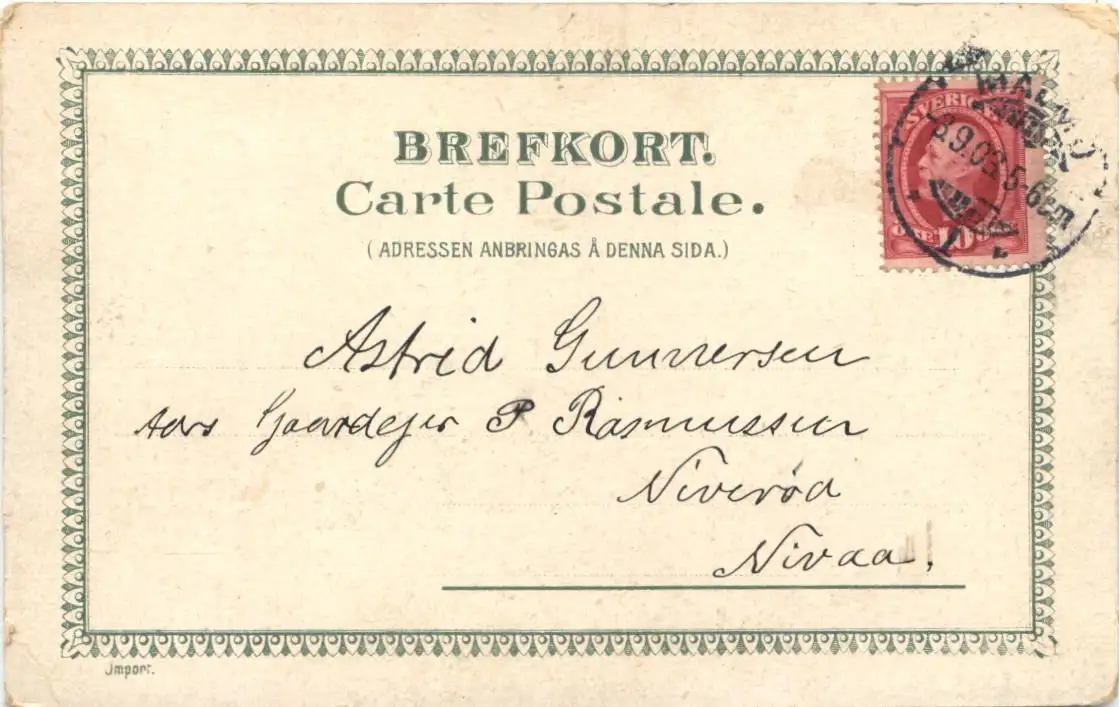 BREFKORT.
Carte Postale.
(ADRESSEN ANBRINGAS Å DENNA SIDA.)
SVERIGE
MALMÖ
9.03. 5-6 em
ÖRE 10
Astrid Gunnersen
Adrs Gaardejer P Rasmussen
Niverød
Nivaa.
Import.